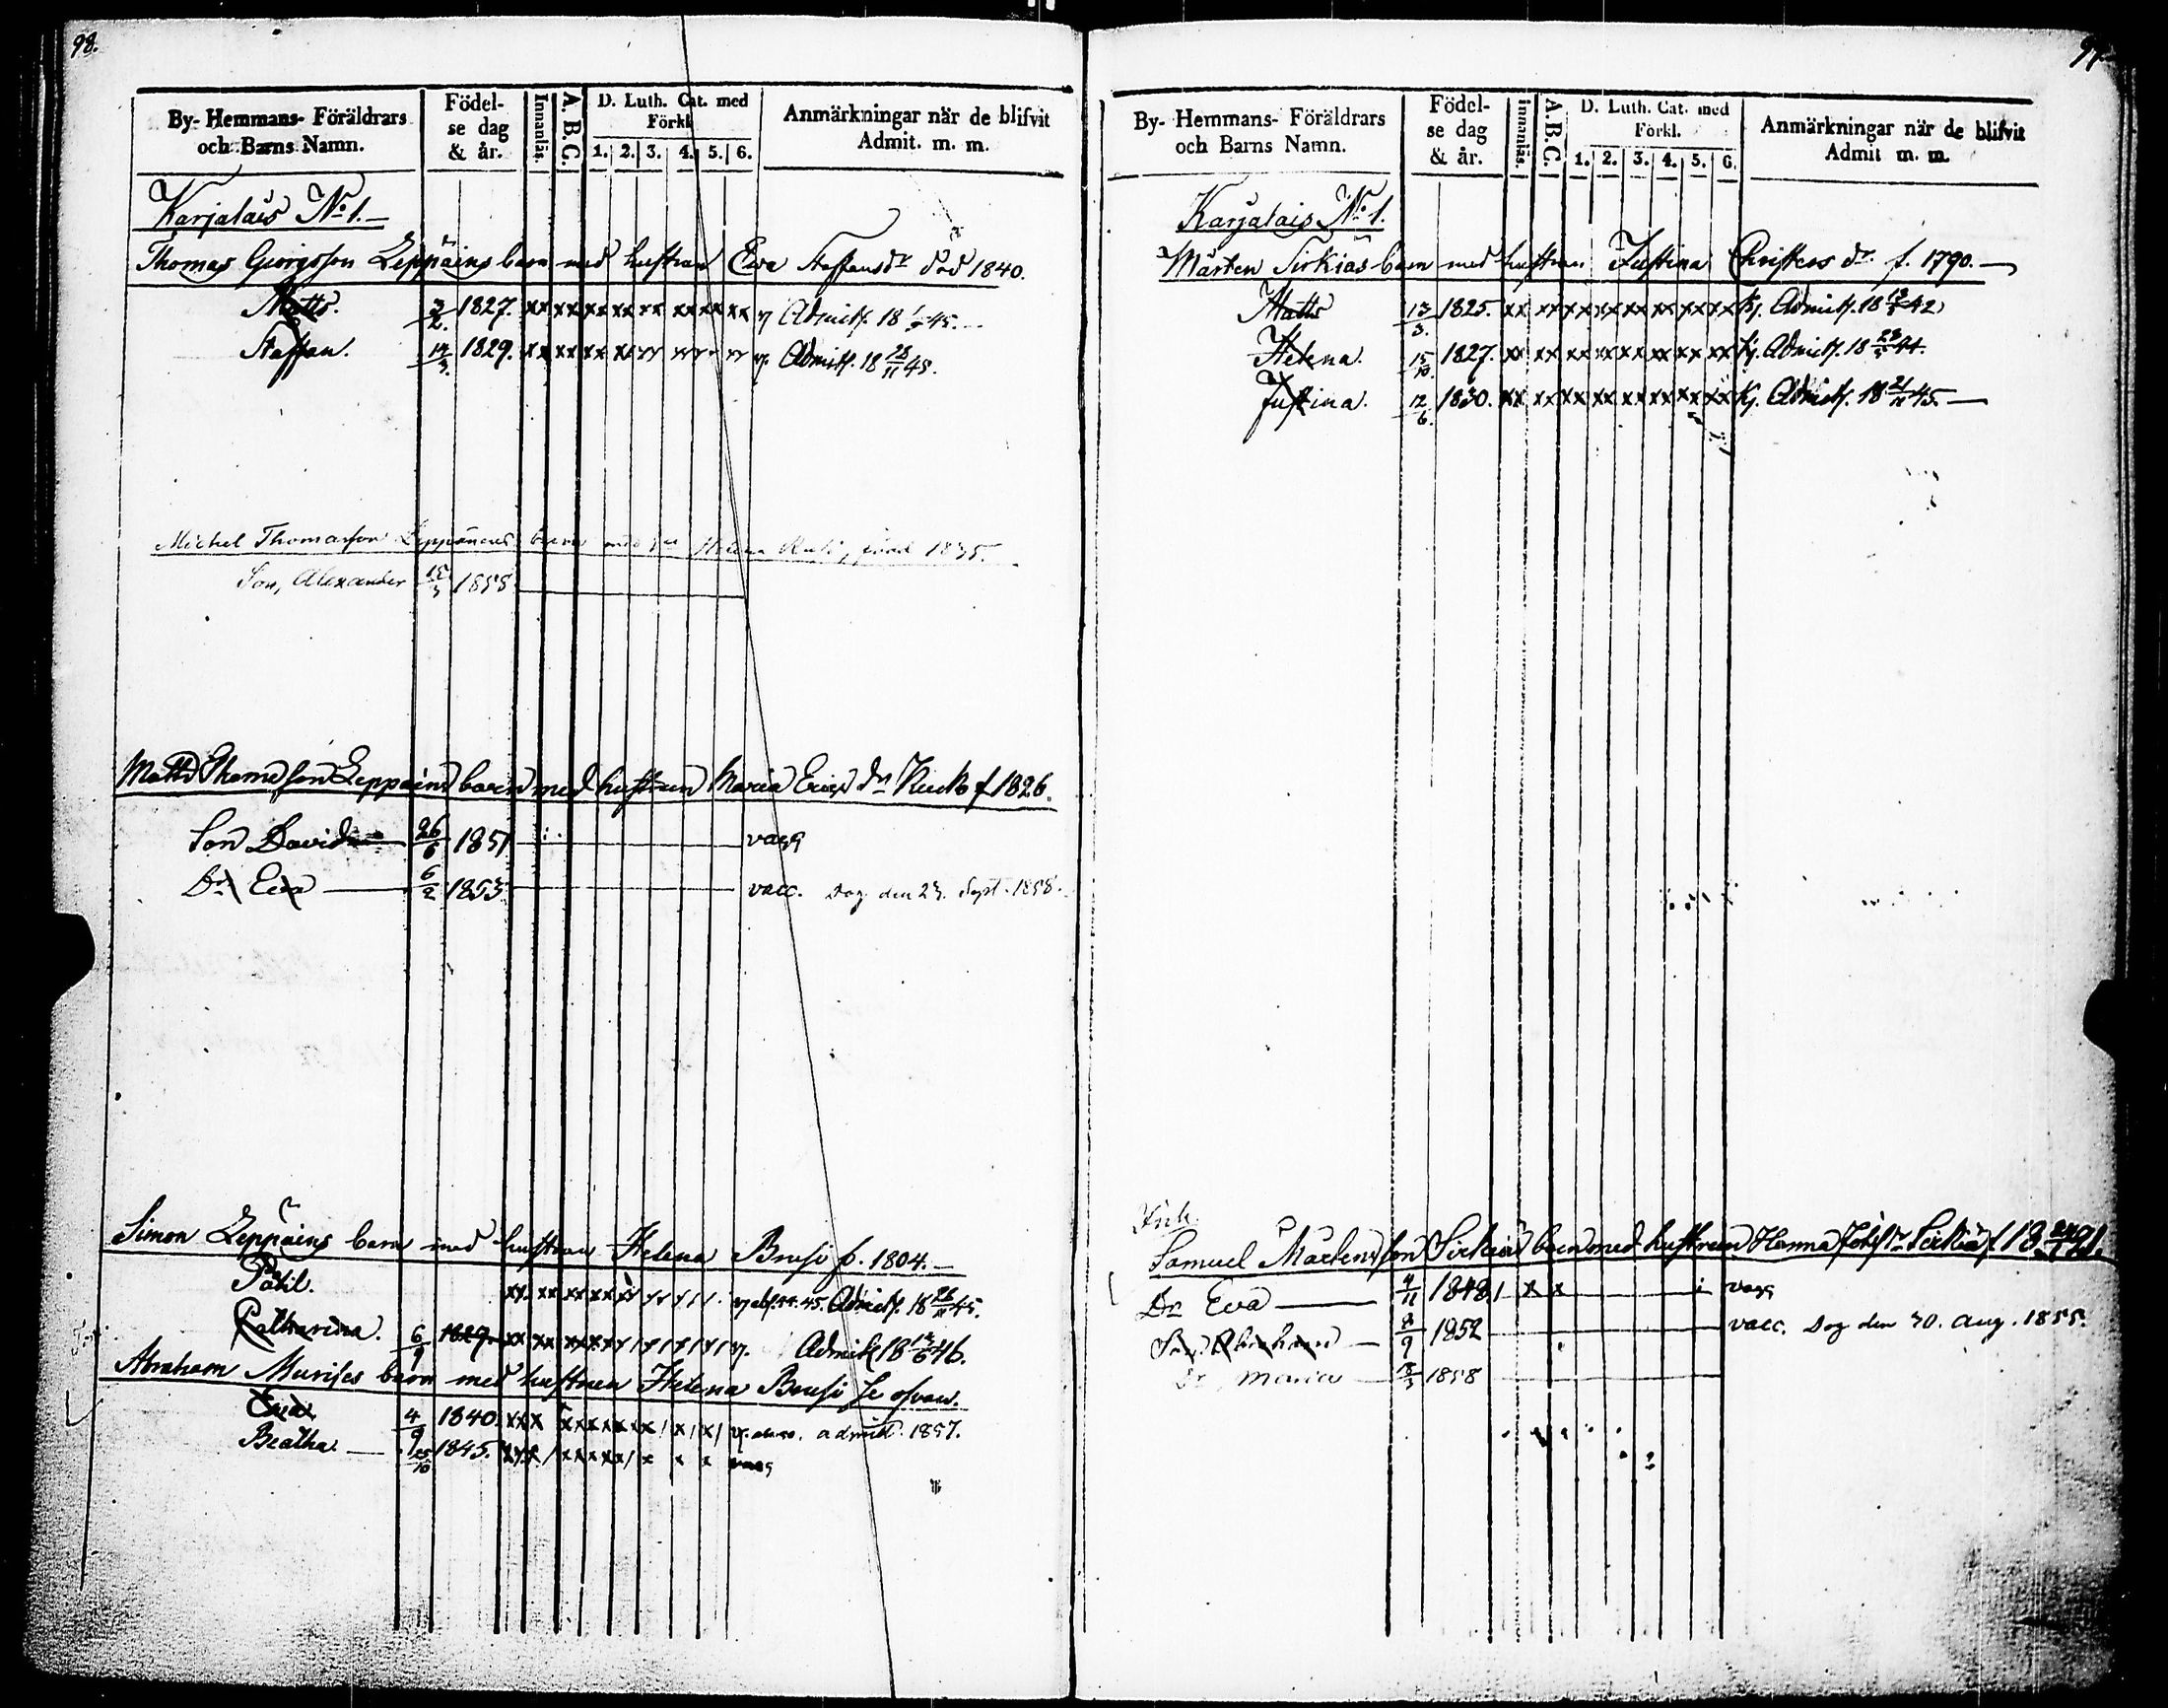 98.
By- Hemmans- Föräldrars och Barns Namn.
Födel-se dag & år.
Innanläs.
A. B. C.
D. Luth. Cat. med Förkl.
1. 2. 3. 4. 5. 6.
Anmärkningar när de blifvit Admit. m. m.
Karjalais No 1.
Thomas Georgsson Leppäins barn med hustran Ewa Staffansdr död 1840.
Matts. 3/2. 1827. xx xx xx xx xx xx xx xx Admitt. 18 45.
Staffan. 14/3. 1829. xx xx xx xx Admitt. 18 28/11 45.
Michel Thomasson Leppänens barn med Helena 1835.
Son, Alexander 15/3 1855
Matts Thomasson Leppäins barn med hustrun Maria Ericsdr Kuck f 1826.
Son David 26/6 1851 vacc
Dr Eva 6/2 1853 vacc. Dog den 23. Sept. 1858.
Simon Leppäins barn med hustran Helena Brusi f. 1804.
Påhl. xx xx xx xx Admitt. 18 45.
Catharina. 6/9 1829. xx xx Admitt 18 46.
Abraham Murises barn med hustrun Helena Brusi Se ofvan.
4/9 1840. xxx admitt. 1857.
Beatha 25/10 1845. vacc
By- Hemmans- Föräldrars och Barns Namn.
Födel-se dag & år.
innanläs.
A. B. C.
D. Luth. Cat. med Förkl.
1. 2. 3. 4. 5. 6.
Anmärkningar när de blifvit Admit m. m.
Karjalais No 1.
Mårten Sirkiäs barn med hustrun Justina Christers dr f. 1790.
Matts 13/3. 1825. xx xx xx xx xx xx xx xx Admitt. 18 42
Helena. 15/10. 1827. xx xx xx xx xx xx xx xx Admitt. 18 44.
Justina. 12/6. 1830. xx xx xx xx xx xx xx xx Admitt. 18 45.
Inh.
Samuel Mårtensson Sirkiäs barn med hustrun Hanna Sirkiä f 18 21.
Dr Eva 4/11 1848 x x vacc
Son Abraham 8/9 1852 vacc. Dog den 30. Aug. 1855.
Dr Maria 1858